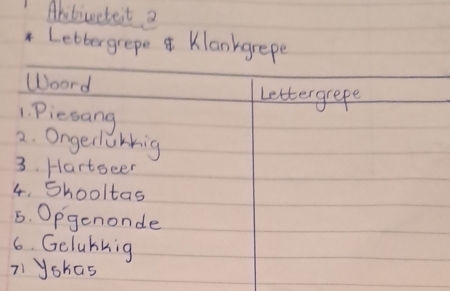 Aktiwiteit 2
* Lettergrepe & Klankgrepe
Woord Lettergrepe
1. Piesang
2. Ongerlukkig
3. Hartseer
4. Skooltas
5. Opgenonde
6. Gelukkig
7) Yskas